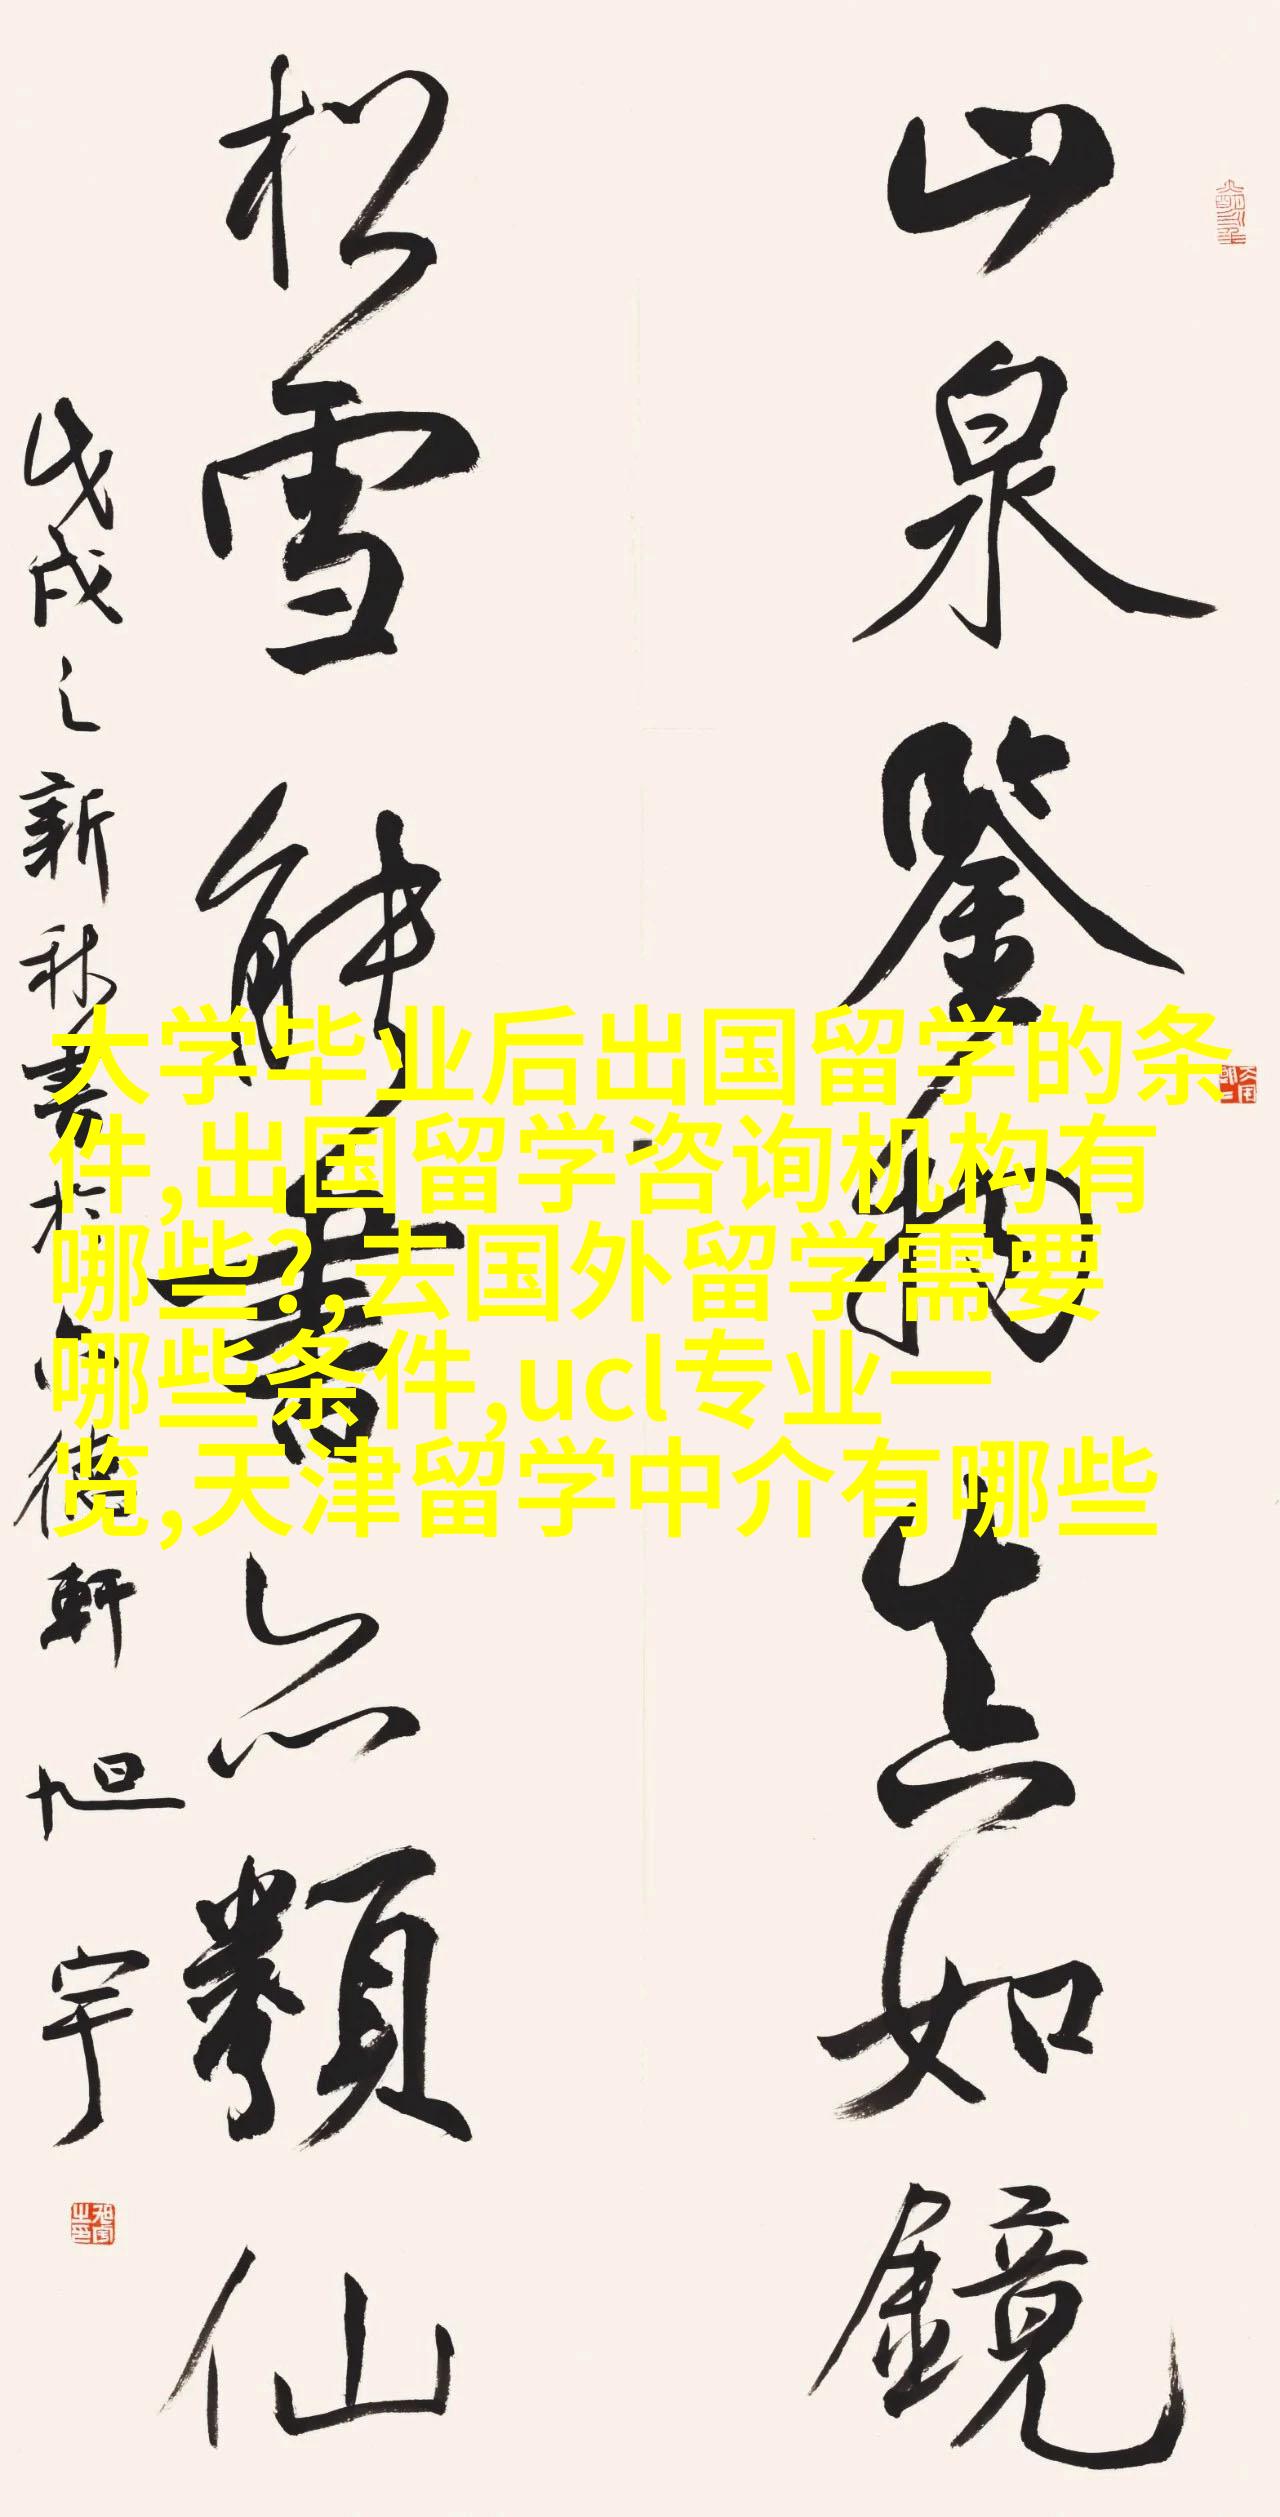 山泉鑒物真如鏡
松雪能書亦類仙
戊戌之新秋書於德軒旭宇
大学毕业后出国留学的条
件,出国留学咨询机构有
哪些?,去国外留学需要
哪些条件,ucl专业一
览,天津留学中介有哪些